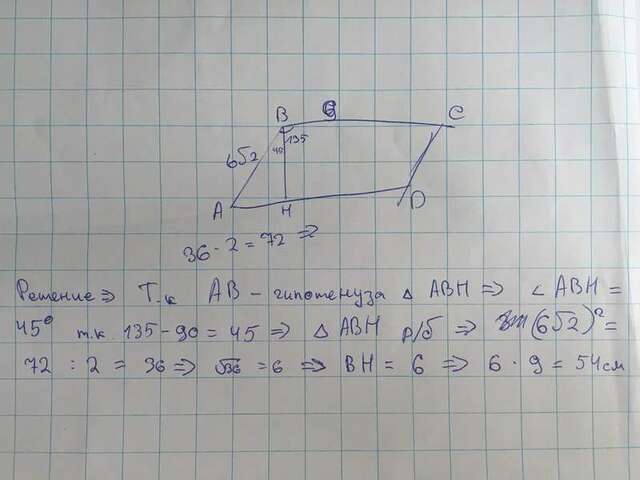 B
C
6√2
135
A
H
D
36 · 2 = 72 ⇒
Решение ⇒ Т.к AB - гипотенуза △ ABH ⇒ < ABH =
45° т.к. 135 - 90 = 45 ⇒ △ ABH р/б ⇒ (6√2)² =
72 : 2 = 36 ⇒ √36 = 6 ⇒ BH = 6 ⇒ 6 · 9 = 54 см